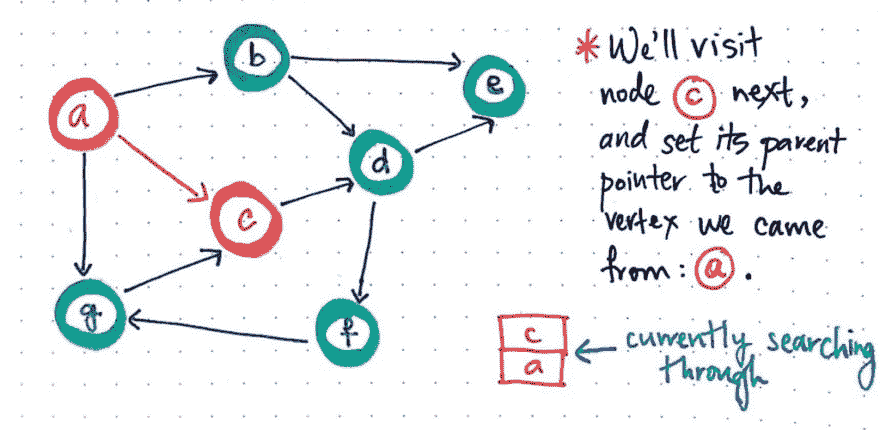 b
e
a
d
c
g
f
* We'll visit
node c next,
and set its parent
pointer to the
vertex we came
from: a.
c
a
currently searching
through